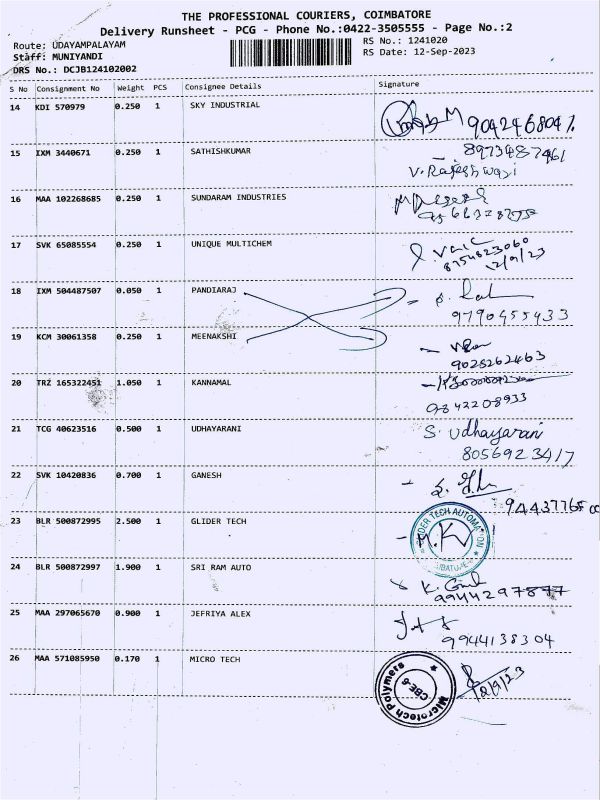 THE PROFESSIONAL COURIERS, COIMBATORE
Delivery Runsheet - PCG - Phone No.:0422-3505555 - Page No.:2
Route: UDAYAMPALAYAM
RS No.: 1241020
Staff: MUNIYANDI
RS Date: 12-Sep-2023
DRS No.: DCJB124102002
S No Consignment No Weight PCS Consignee Details Signature
14 KDI 570979 0.250 1 SKY INDUSTRIAL
15 IXM 3440671 0.250 1 SATHISHKUMAR 8973487461
V. Rajeshwari
16 MAA 102268685 0.250 1 SUNDARAM INDUSTRIES
17 SVK 65085554 0.250 1 UNIQUE MULTICHEM
8754823060
12/9/23
18 IXM 504487507 0.050 1 PANDIARAJ
9790455433
19 KCM 30061358 0.250 1 MEENAKSHI
9025262463
20 TRZ 165322451 1.050 1 KANNAMAL
9842208933
21 TCG 40623516 0.500 1 UDHAYARANI S. Udhayarani
8056923417
22 SVK 10420836 0.700 1 GANESH
23 BLR 500872995 2.500 1 GLIDER TECH
24 BLR 500872997 1.900 1 SRI RAM AUTO
25 MAA 297065670 0.900 1 JEFRIYA ALEX
9944138304
26 MAA 571085950 0.170 1 MICRO TECH
Microtech Polymers
CBE-6
12/9/23